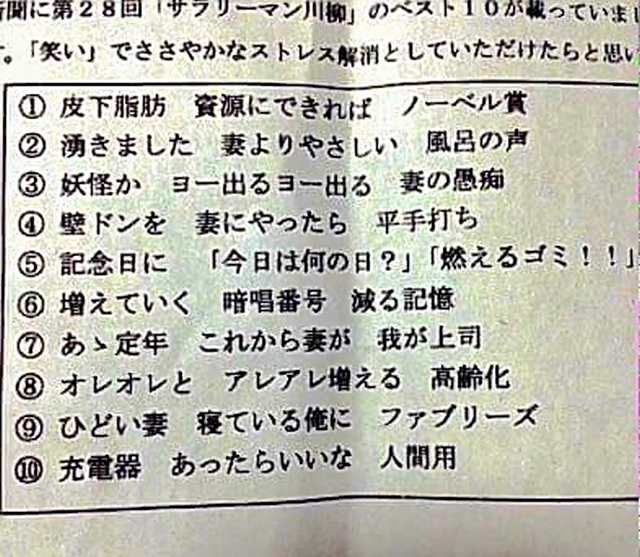 聞に第２８回「サラリーマン川柳」のベスト１０が載っていま
す。「笑い」でささやかなストレス解消としていただけたらと思い
① 皮下脂肪　資源にできれば　ノーベル賞
② 湧きました　妻よりやさしい　風呂の声
③ 妖怪か　ヨー出るヨー出る　妻の愚痴
④ 壁ドンを　妻にやったら　平手打ち
⑤ 記念日に　「今日は何の日？」「燃えるゴミ！！」
⑥ 増えていく　暗唱番号　減る記憶
⑦ あゝ定年　これから妻が　我が上司
⑧ オレオレと　アレアレ増える　高齢化
⑨ ひどい妻　寝ている俺に　ファブリーズ
⑩ 充電器　あったらいいな　人間用